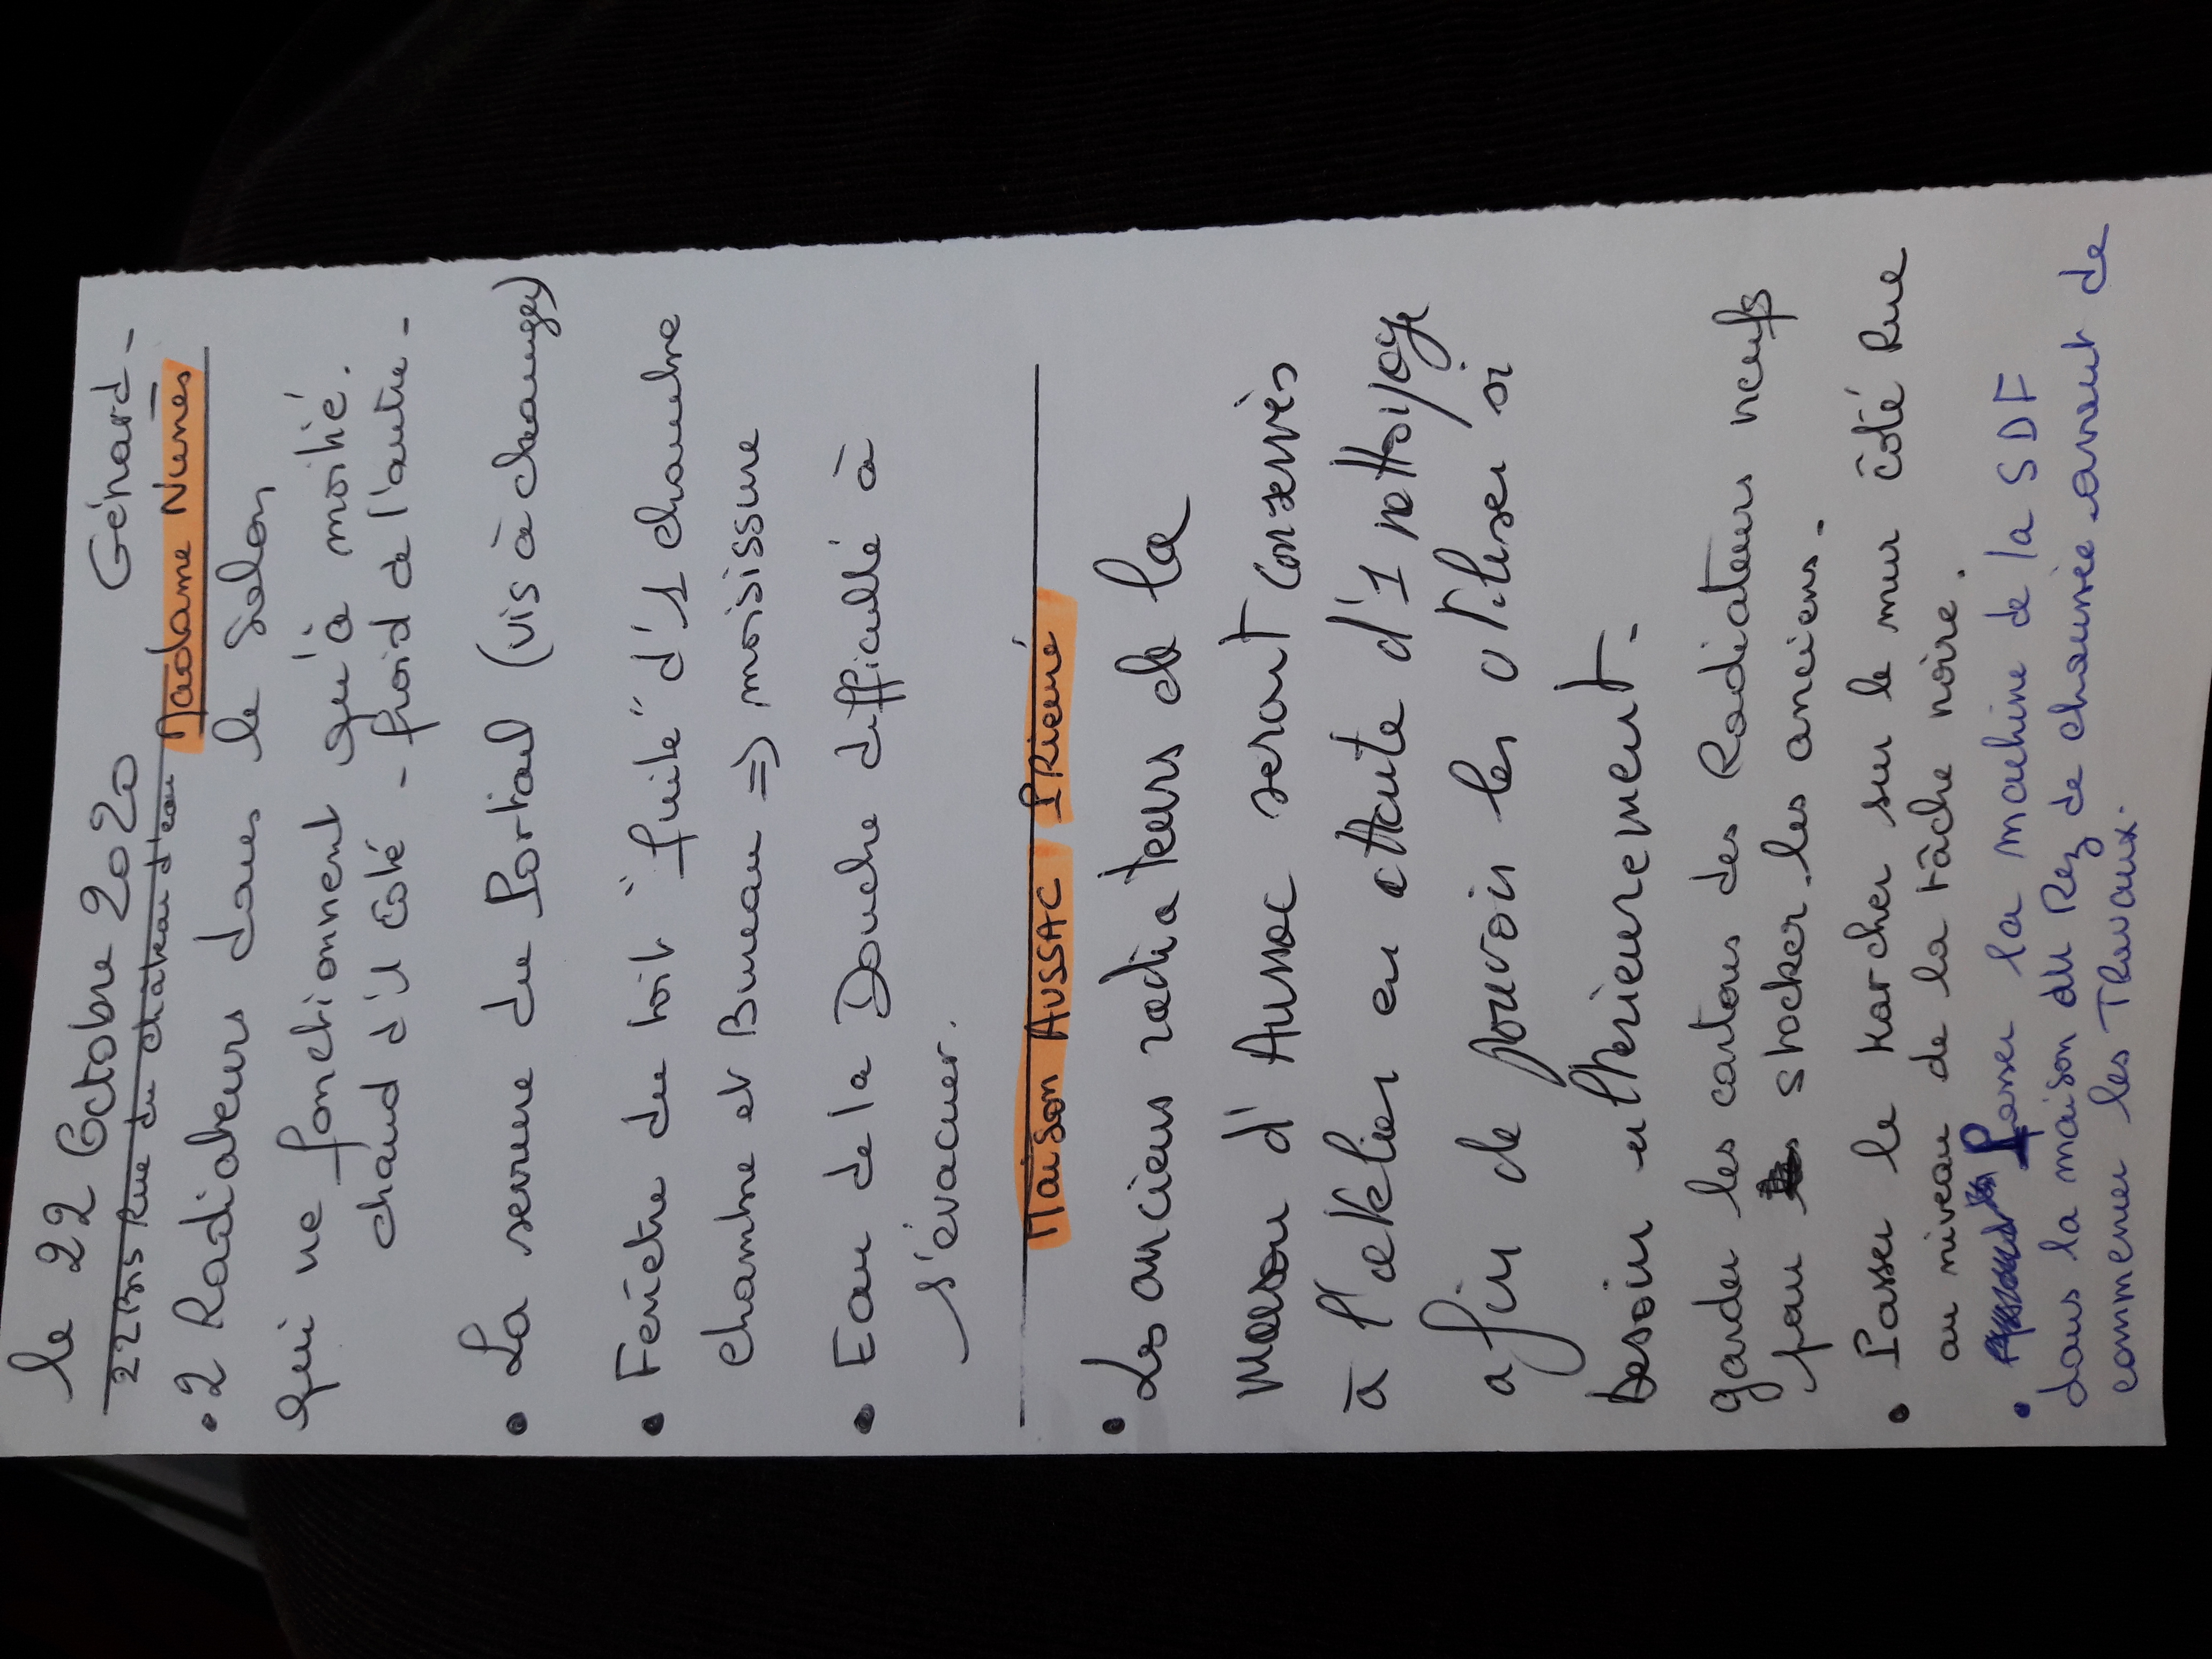 le 22 Octobre 2020 Gérard -
22 Bis Rue du château d'eau Madame Nunes
• 2 Radiateurs dans le Salon
qui ne fonctionnent qu'à moitié.
chaud d'1 côté - froid de l'autre -
• La serrure du Portail (vis à changer)
• Fenêtre de toit "fuite" d'1 chambre
chambre et Bureau => moisissure
• Eau de la Douche difficulté à
s'évacuer.
Maison AUSSAC PRieuré
• Les anciens radiateurs de la
Maison d'Aussac seront conservés
à l'atelier en attente d'1 nettoyage
afin de pouvoir les utiliser si
besoin ultérieurement -
garder les cartons des Radiateurs neufs
pour stocker les anciens -
• Passer le Karcher sur le mur côté Rue
au niveau de la tâche noire.
• Passer la machine de la SDF
dans la maison du Rez de chaussée avant de
commencer les Travaux.